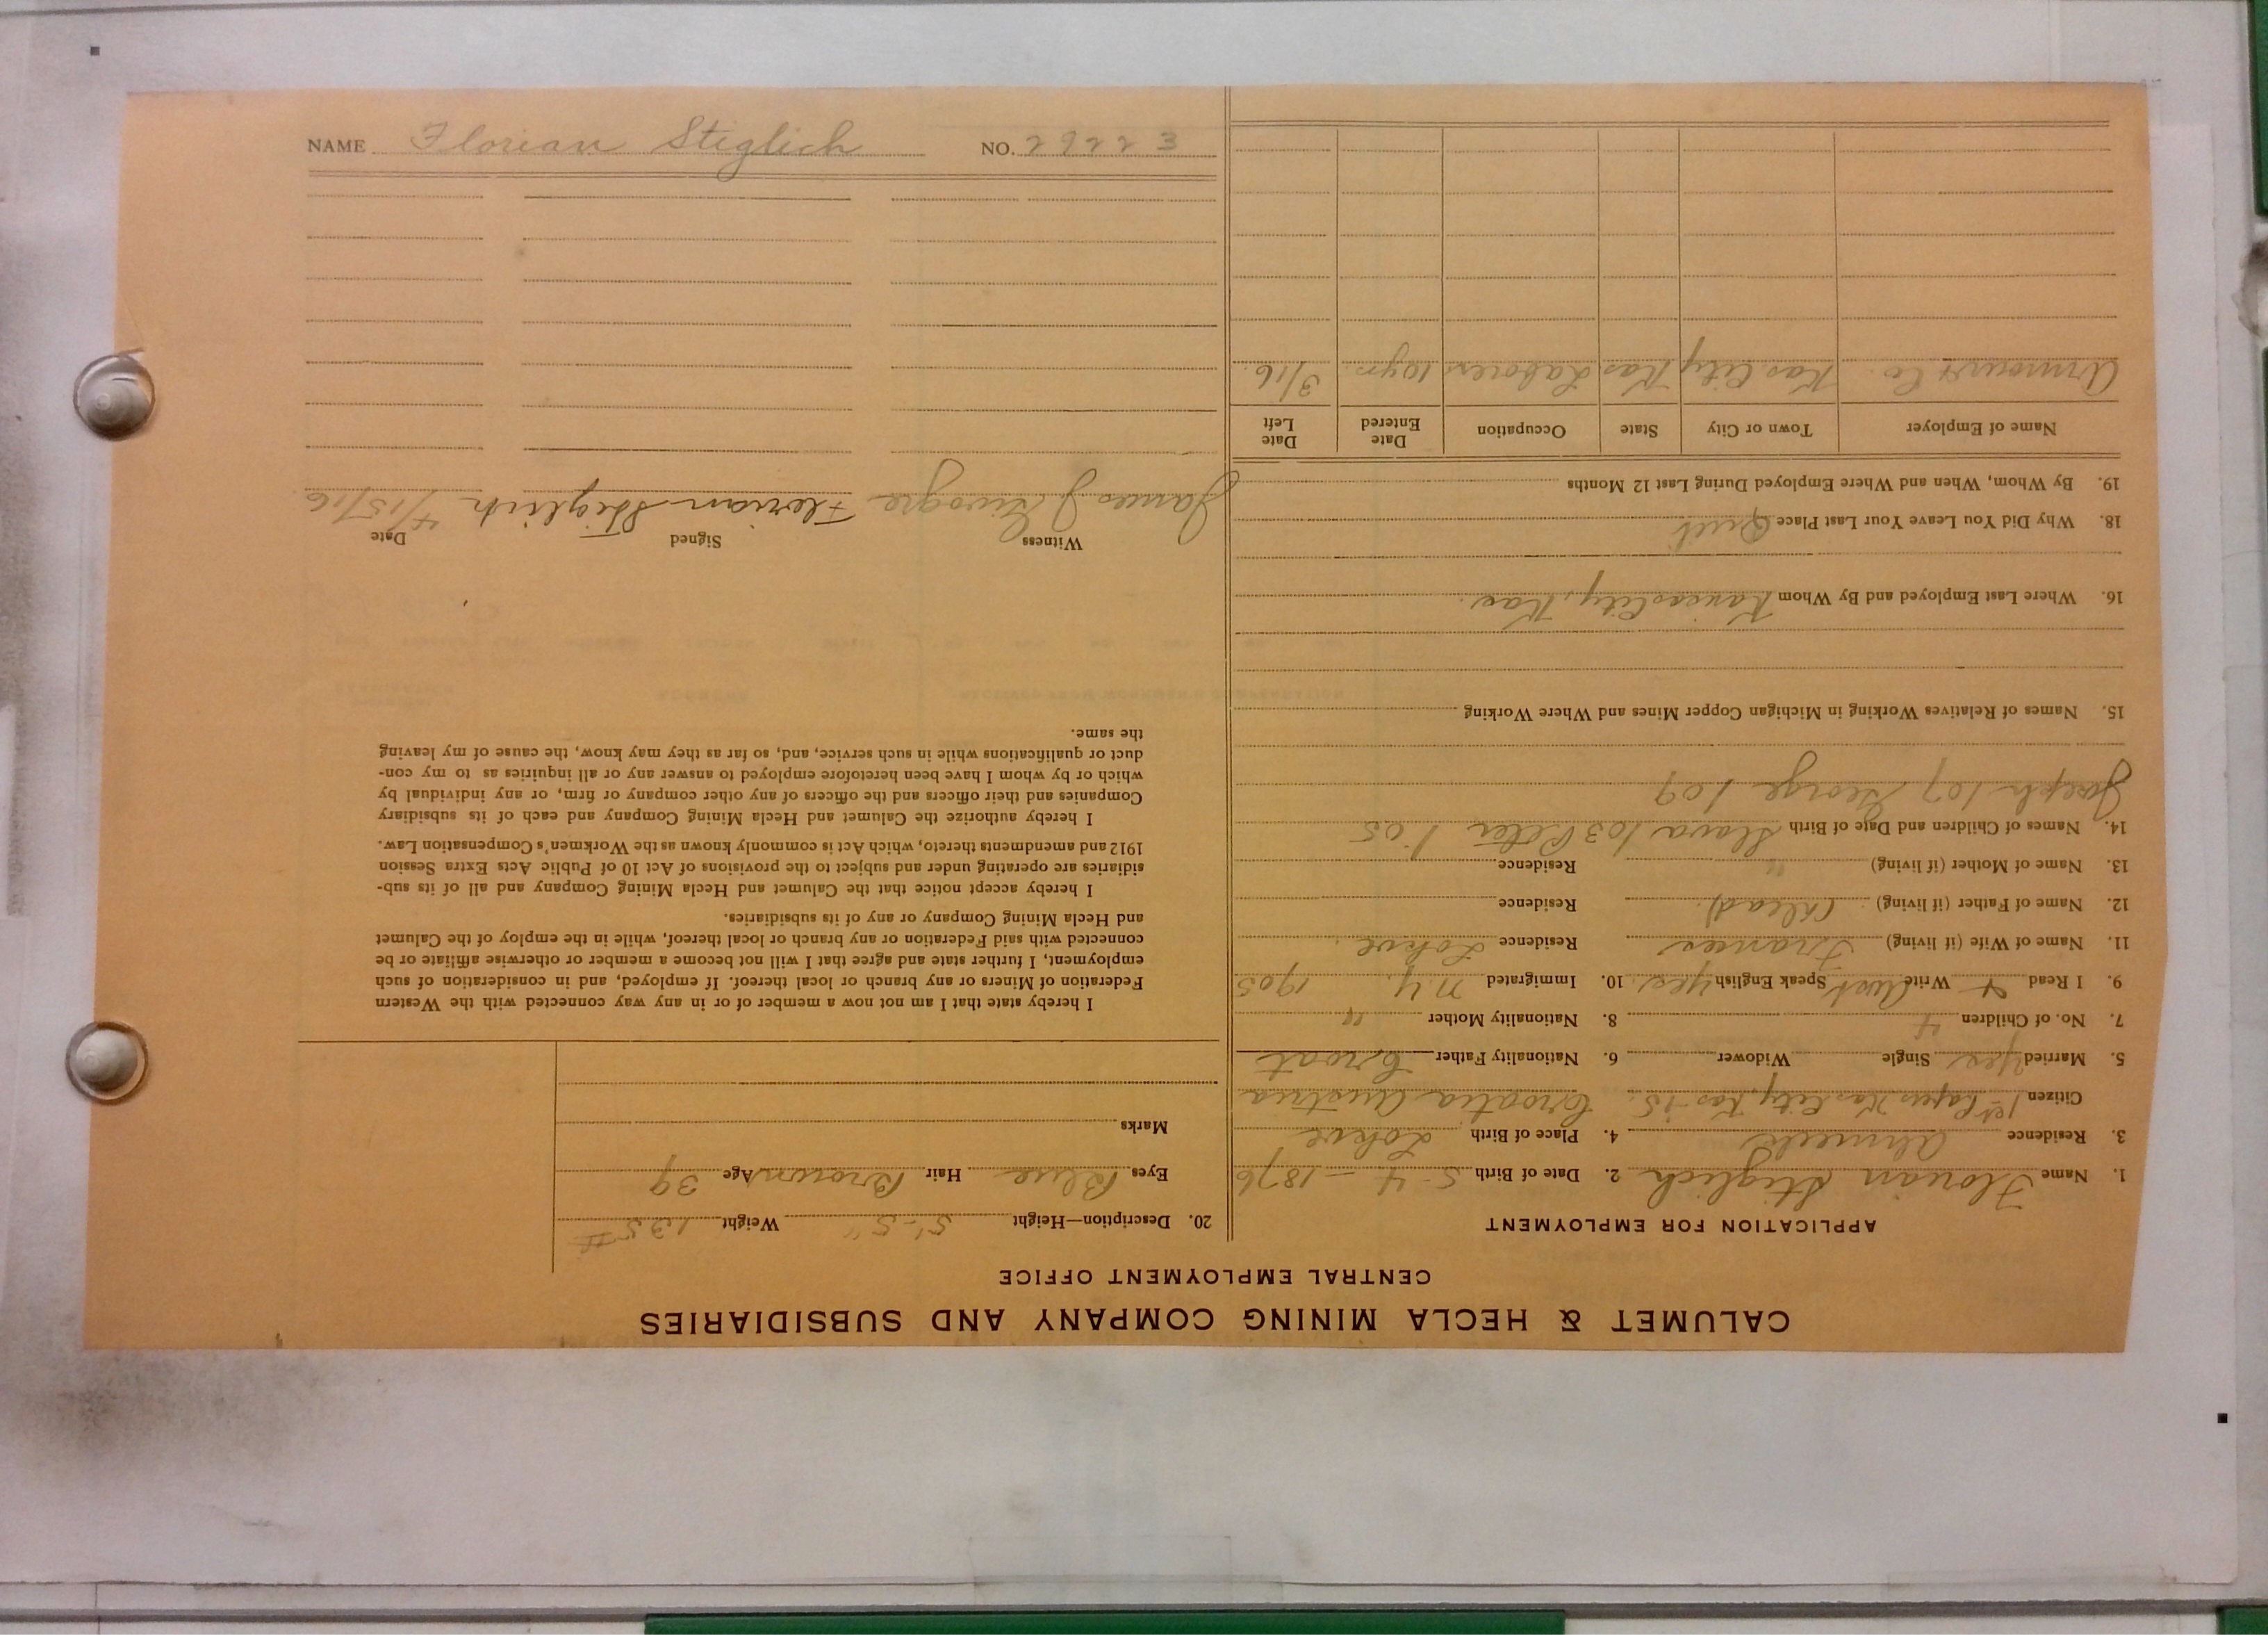 NAME Florian Stiglich NO. 29223
CALUMET & HECLA MINING COMPANY AND SUBSIDIARIES
CENTRAL EMPLOYMENT OFFICE
APPLICATION FOR EMPLOYMENT
1. Name Florian Stiglich 2. Date of Birth 5-4-1876
3. Residence Ahmeek 4. Place of Birth Lokve
Citizen 1st Papers Kas City, Kas 15. Croatia Austria
5. Married yes Single Widower 6. Nationality Father Croat
7. No. of Children 4 8. Nationality Mother "
9. I Read + Write Aust Speak English yes 10. Immigrated N.Y. 1905
11. Name of Wife (if living) Frances Residence Lokve
12. Name of Father (if living) (Dead) Residence
13. Name of Mother (if living) " Residence
14. Names of Children and Date of Birth Slava 103 Peter 105
Joseph 107 George 109
15. Names of Relatives Working in Michigan Copper Mines and Where Working
16. Where Last Employed and By Whom Kansas City, Kas.
18. Why Did You Leave Your Last Place Quit
19. By Whom, When and Where Employed During Last 12 Months
Name of Employer Town or City State Occupation Date Entered Date Left
Armour & Co. Kas City Kas Laborer 10 yrs. 3/16
20. Description—Height 5'-5" Weight 135 #
Eyes Blue Hair Brown Age 39
Marks
I hereby state that I am not now a member of or in any way connected with the Western
Federation of Miners or any branch or local thereof. If employed, and in consideration of such
employment, I further state and agree that I will not become a member or otherwise affiliate or be
connected with said Federation or any branch or local thereof, while in the employ of the Calumet
and Hecla Mining Company or any of its subsidiaries.
I hereby accept notice that the Calumet and Hecla Mining Company and all of its sub-
sidiaries are operating under and subject to the provisions of Act 10 of Public Acts Extra Session
1912 and amendments thereto, which Act is commonly known as the Workmen's Compensation Law.
I hereby authorize the Calumet and Hecla Mining Company and each of its subsidiary
Companies and their officers and the officers of any other company or firm, or any individual by
which or by whom I have been heretofore employed to answer any or all inquiries as to my con-
duct or qualifications while in such service, and, so far as they may know, the cause of my leaving
the same.
Witness Signed Date
James J Florian Stiglich 4/15/16